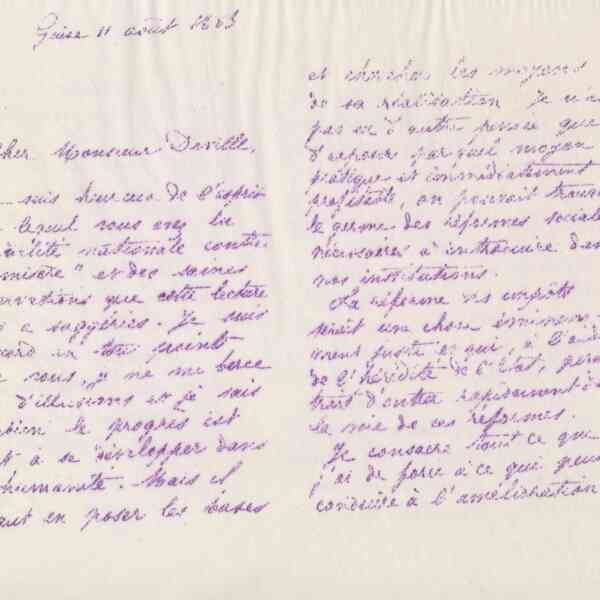 Guise 11 août 1883
cher Monsieur Deville,
suis heureux de l'esprit
lequel vous avez lu
nationale contre
misère" et des saines
que cette lecture
a suggérées. Je suis
en tous points
vous, je ne me berce
d'illusions et je sais
bien le progrès est
à se développer dans
humanité. Mais il
faut en poser les bases
et chercher les moyens
de sa réalisation. Je n'ai
pas eu d'autre pensée que
d'exposer par quel moyen
pratique et immédiatement
profitable, on pouvait trouver
le germe des réformes sociales
nécessaires à introduire dans
nos institutions.
La réforme des impôts
serait une chose éminem-
ment juste et qui, à l'aide
de l'hérédité de l'État, permet-
trait d'entrer rapidement dans
la voie de ces réformes.
Je consacre tout ce que
j'ai de force à ce qui peut
conduire à l'amélioration